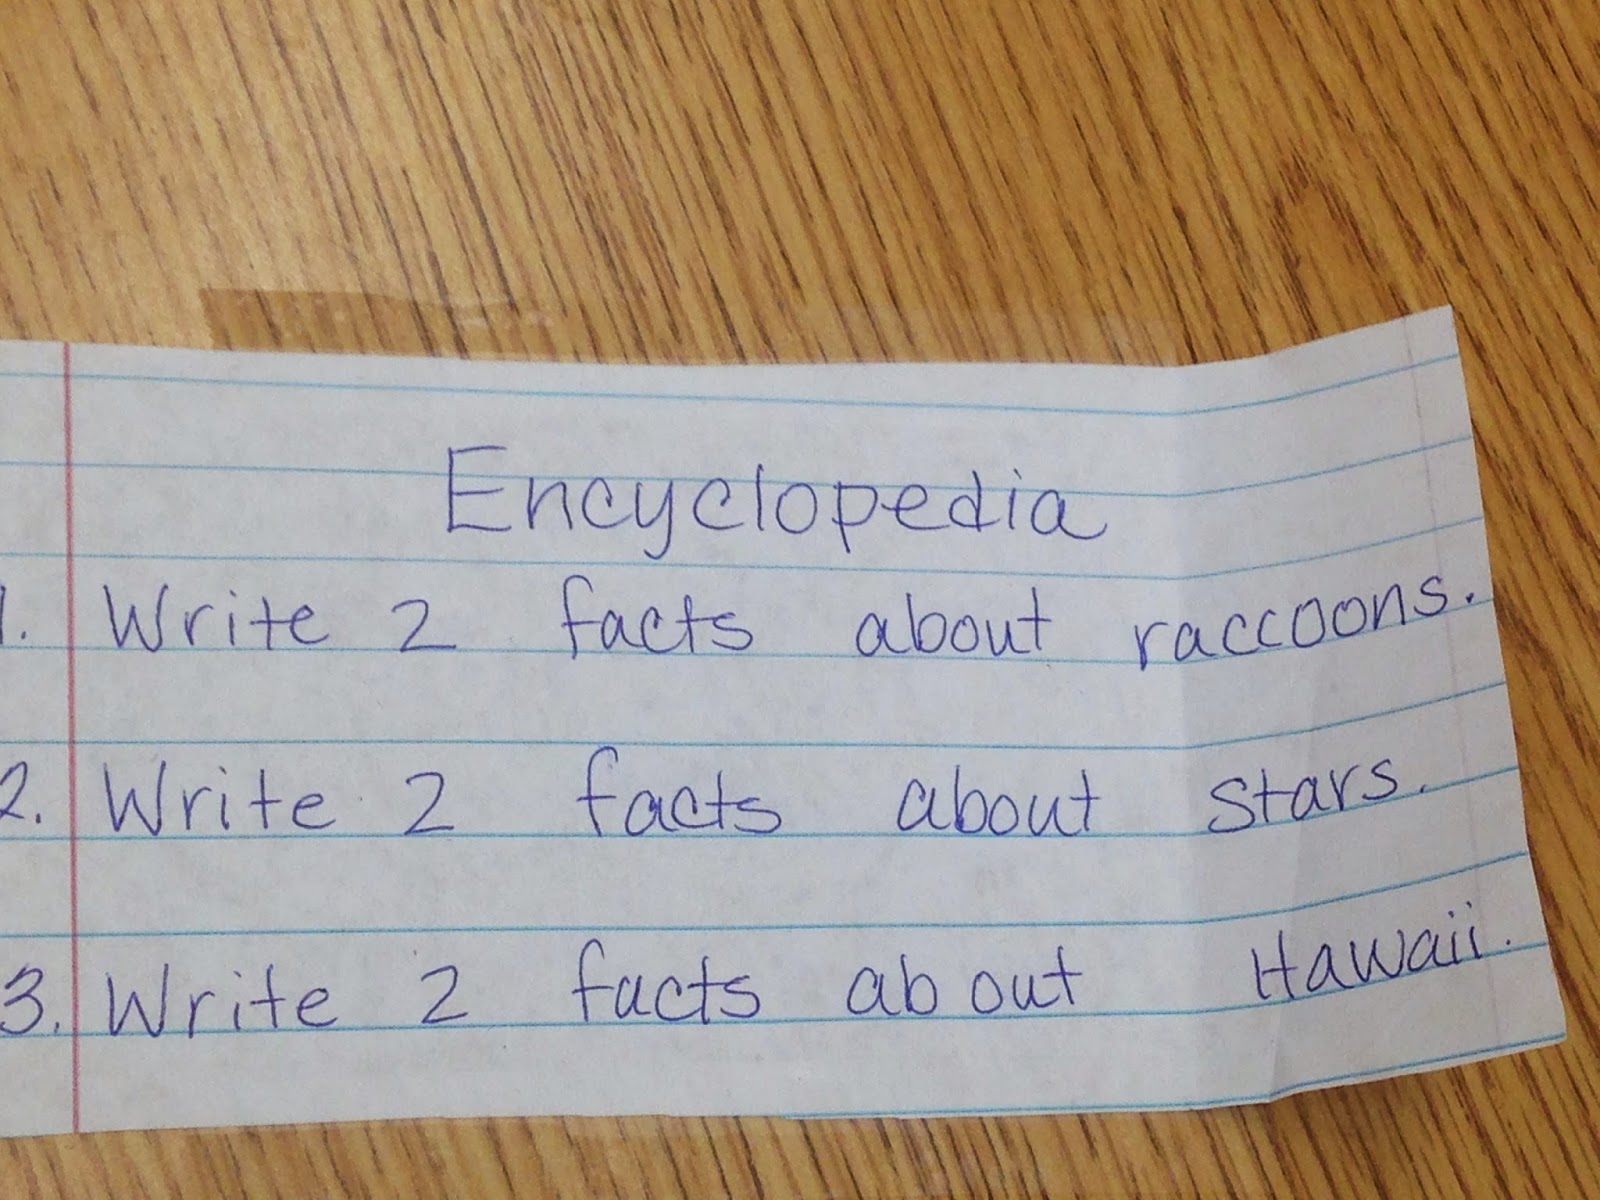 Encyclopedia
1. Write 2 facts about raccoons.
2. Write 2 facts about stars.
3. Write 2 facts about Hawaii.